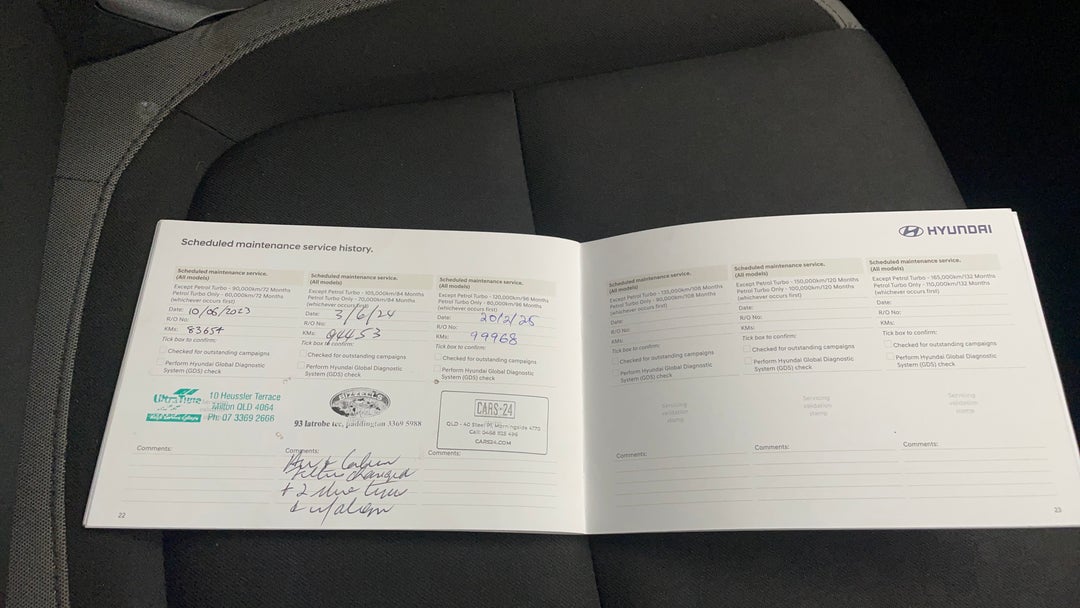 Scheduled maintenance service history.
Scheduled maintenance service.
(All models)
Except Petrol Turbo - 90,000km/72 Months
Petrol Turbo Only - 60,000km/72 Months
(whichever occurs first)
Date: 10/06/2023
R/O No:
KMs: 83657
Tick box to confirm:
Checked for outstanding campaigns
Perform Hyundai Global Diagnostic
System (GDS) check
UltraTune
10 Heussler Terrace
Milton QLD 4064
Ph: 07 3369 2666
Comments:
22
Scheduled maintenance service.
(All models)
Except Petrol Turbo - 105,000km/84 Months
Petrol Turbo Only - 70,000km/84 Months
(whichever occurs first)
Date: 3/6/24
R/O No:
KMs: 94453
Tick box to confirm:
Checked for outstanding campaigns
Perform Hyundai Global Diagnostic
System (GDS) check
93 latrobe tce, paddington 3369 5988
Comments:
changed
+ 2
Scheduled maintenance service.
(All models)
Except Petrol Turbo - 120,000km/96 Months
Petrol Turbo Only - 80,000km/96 Months
(whichever occurs first)
Date: 20/2/25
R/O No:
KMs: 99968
Tick box to confirm:
Checked for outstanding campaigns
Perform Hyundai Global Diagnostic
System (GDS) check
CARS-24
QLD - 40 Steel Pl, Morningside 4170
CARS24.COM
Comments:
HYUNDAI
Scheduled maintenance service.
(All models)
Except Petrol Turbo - 135,000km/108 Months
Petrol Turbo Only - 90,000km/108 Months
(whichever occurs first)
Date:
R/O No:
KMs:
Tick box to confirm:
Checked for outstanding campaigns
Perform Hyundai Global Diagnostic
System (GDS) check
Servicing
validation
stamp
Comments:
Scheduled maintenance service.
(All models)
Except Petrol Turbo - 150,000km/120 Months
Petrol Turbo Only - 100,000km/120 Months
(whichever occurs first)
Date:
R/O No:
KMs:
Tick box to confirm:
Checked for outstanding campaigns
Perform Hyundai Global Diagnostic
System (GDS) check
Servicing
validation
stamp
Comments:
Scheduled maintenance service.
(All models)
Except Petrol Turbo - 165,000km/132 Months
Petrol Turbo Only - 110,000km/132 Months
(whichever occurs first)
Date:
R/O No:
KMs:
Tick box to confirm:
Checked for outstanding campaigns
Perform Hyundai Global Diagnostic
System (GDS) check
Servicing
validation
stamp
Comments:
23